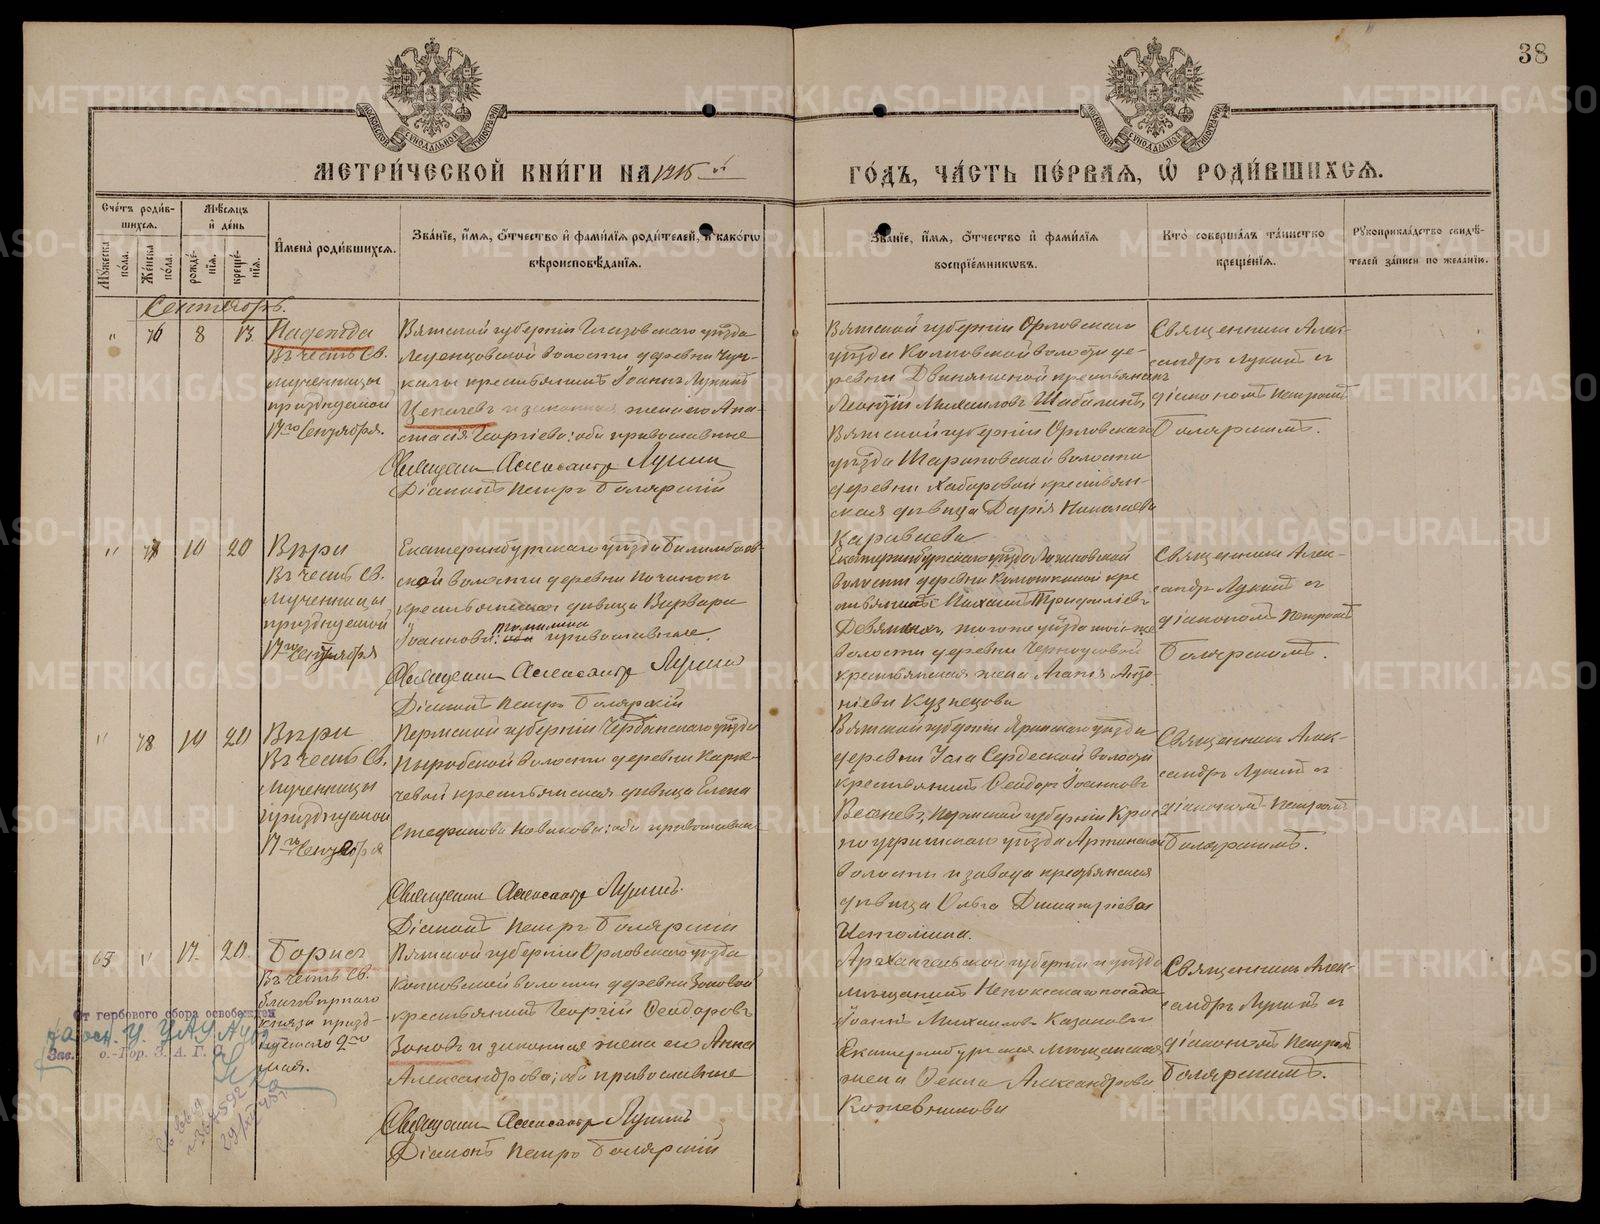 38
МЕТРИЧЕСКОЙ КНИГИ НА 1916 й
ГОДЪ, ЧАСТЬ ПЕРВАЯ, Ѡ РОДИВШИХСЯ.
Счетъ родив-
шихся.
Мужеска
пола.
Женска
пола.
Мѣсяцъ
и день
рожде-
нія.
креще-
нія.
Имена родившихся.
Званіе, имя, отчество и фамилія родителей, и какогѡ
вѣроисповѣданія.
Званіе, имя, отчество и фамилія
воспріемникѡвъ.
Кто совершалъ таинство
крещенія.
Рукоприкладство свидѣ-
телей записи по желанію.
Сентябрь.
" 76 8 13.
Надежда
Въ честь Св.
мученницы
празднуемой
17го Сентября.
Вятской губерніи Глазовскаго уѣзда
волости деревни Чуч-
калы крестьянинъ Іоаннъ Лукинъ
Цепелевъ и законная жена его Ана-
стасія Георгіева; оба православные
Священник Александр Лукин
Діаконъ Петръ Боляркій
Вятской губерніи Орловскаго
уѣзда Колковской волости де-
ревни крестьянинъ
Леонтій Михаиловъ Шабалинъ,
Вятской губерніи Орловскаго
уѣзда Шараповской волости
деревни Хабаровой крестьян-
ская дѣвица Дарія Николаева
Караваева
Священникъ Алек-
сандръ Лукинъ съ
діакономъ Петромъ
Боляркимъ.
" 77 10 20
Вѣра
Въ честь Св.
мученницы,
празднуемой
17го Сентября
Екатеринбургскаго уѣзда Билимбаев-
ской волости деревни Починокъ
крестьянская дѣвица Варвара
Іоаннова Томилина православная.
Священник Александр Лукин
Діаконъ Петръ Боляркій
Екатеринбургскаго уѣзда
волости деревни кре
стьянинъ Михаилъ Трифиліевъ
тогоже уѣзда той-же
волости деревни Черноусовой
крестьянская жена Агапія Анто-
ніева Кузнецова
Священникъ Алек-
сандръ Лукинъ съ
діакономъ Петромъ
Боляркимъ.
" 78 10 20
Вѣра
Въ честь Св.
мученницы
празднуемой
17го Сентября
Пермской губерніи Чердынскаго уѣзда
Ныробской волости деревни Карп-
чевой крестьянская дѣвица Елена
Стефанова православная
Священник Александр Лукинъ.
Діаконъ Петръ Боляркій
Вятской губерніи Яранскаго уѣзда
деревни волости
крестьянинъ Ѳеодоръ Іоанновъ
Пермской губерніи Крас-
ноуфимскаго уѣзда Артинской
волости и завода крестьянская
дѣвица Ольга Димитріева
Истомина.
Священникъ Алек-
сандръ Лукинъ съ
діакономъ Петромъ
Боляркимъ.
65 " 17. 20.
Борисъ
Въ честь Св.
благовѣрнаго
князя празд-
нуемаго 2го
мая.
Вятской губерніи Орловскаго уѣзда
Колковской волости деревни Зоновой
крестьянинъ Георгій Ѳеодоровъ
Зоновъ и законная жена его Анна
Александрова; оба православные
Священник Александр Лукинъ
Діаконъ Петръ Боляркій
Архангельской губерніи и уѣзда
мѣщанинъ Ненокскаго посада
Іоаннъ Михаиловъ Казаковъ
Екатеринбургская мѣщанская
жена Ѳекла Александрова
Кожевникова
Священникъ Алек-
сандръ Лукинъ съ
діакономъ Петромъ
Боляркимъ.
От гербового сбора освобожден
Зав. о.-Гор. З. А. Г. С.
METRIKI.GASO-URAL.RU